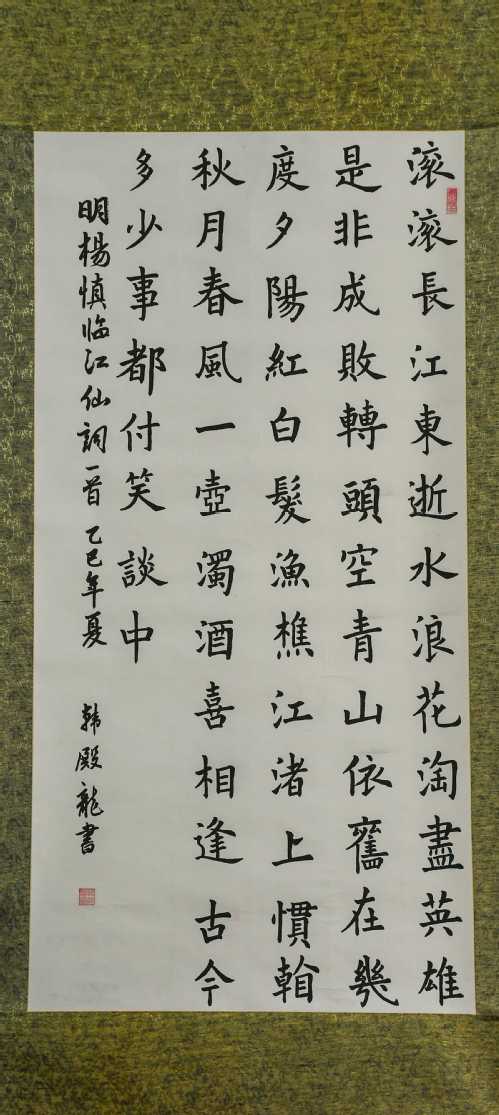 滚滚長江東逝水浪花淘盡英雄
是非成敗轉頭空青山依舊在幾
度夕陽紅白髮漁樵江渚上慣
秋月春風一壺濁酒喜相逢古今
多少事都付笑談中
明楊慎临江仙詞一首 乙巳年夏 韩殿龍書